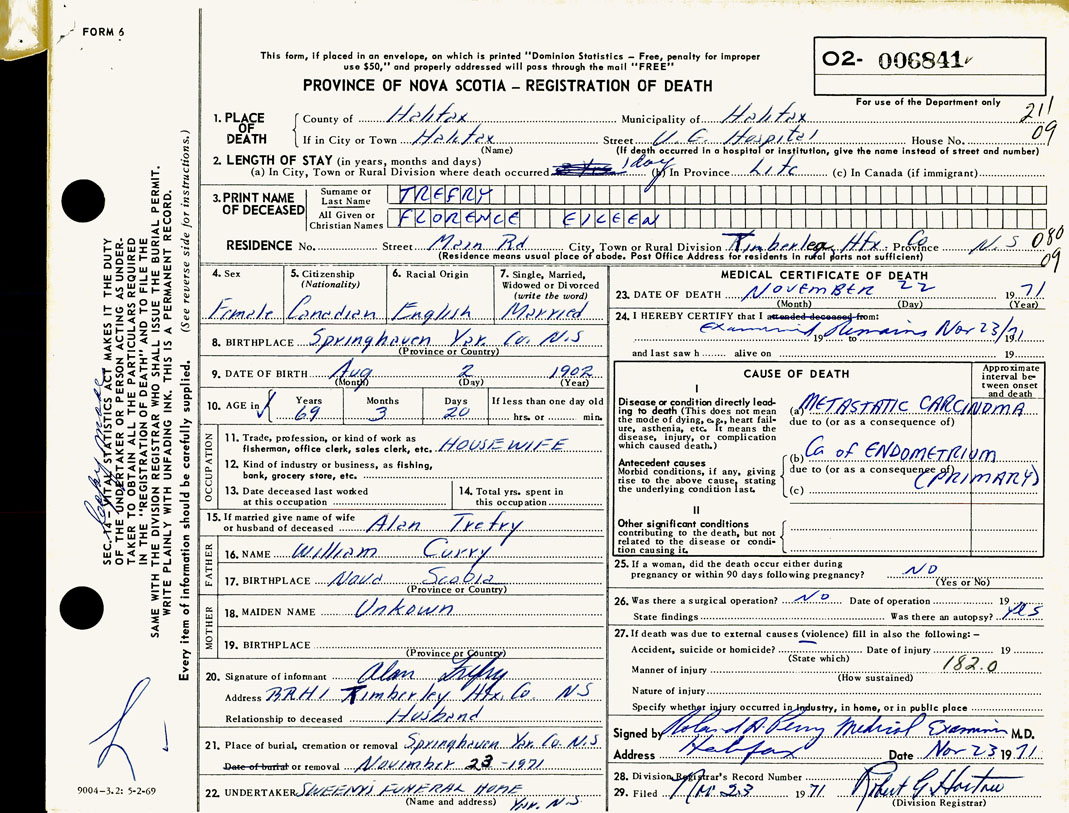 FORM 6
This form, if placed in an envelope, on which is printed "Dominion Statistics – Free, penalty for improper
use $50," and properly addressed will pass through the mail "FREE"
PROVINCE OF NOVA SCOTIA – REGISTRATION OF DEATH
O2- 006841
For use of the Department only
211
09
1. PLACE OF DEATH
County of Halifax Municipality of Halifax
If in City or Town Halifax Street V. G. Hospital House No.
(Name) (If death occurred in a hospital or institution, give the name instead of street and number)
2. LENGTH OF STAY (in years, months and days)
(a) In City, Town or Rural Division where death occurred 1 day (b) In Province Life (c) In Canada (if immigrant)
3. PRINT NAME OF DECEASED
Surname or Last Name TREFRY
All Given or Christian Names FLORENCE EILEEN
RESIDENCE No. Street Main Rd City, Town or Rural Division Timberlea Hfx. Co Province N. S 080
(Residence means usual place of abode. Post Office Address for residents in rural parts not sufficient) 09
4. Sex Female
5. Citizenship (Nationality) Canadian
6. Racial Origin English
7. Single, Married, Widowed or Divorced (write the word) Married
8. BIRTHPLACE Springhaven Yar. Co. N.S
(Province or Country)
9. DATE OF BIRTH Aug 2 1902
(Month) (Day) (Year)
10. AGE in Years 69 Months 3 Days 20 If less than one day old hrs. or min.
OCCUPATION
11. Trade, profession, or kind of work as
fisherman, office clerk, sales clerk, etc. HOUSEWIFE
12. Kind of industry or business, as fishing,
bank, grocery store, etc.
13. Date deceased last worked at this occupation
14. Total yrs. spent in this occupation
15. If married give name of wife
or husband of deceased Alan Trefry
FATHER
16. NAME William Curry
17. BIRTHPLACE Nova Scotia
(Province or Country)
MOTHER
18. MAIDEN NAME Unkown
19. BIRTHPLACE
(Province or Country)
20. Signature of informant Alan Trefry
Address RR#1 Timberley Hfx. Co. N.S
Relationship to deceased Husband
21. Place of burial, cremation or removal Springhaven Yar. Co. N.S
Date of burial or removal November 23 -1971
22. UNDERTAKER SWEENY'S FUNERAL HOME
(Name and address) Yar. N.S.
MEDICAL CERTIFICATE OF DEATH
23. DATE OF DEATH NOVEMBER 22 1971
(Month) (Day) (Year)
24. I HEREBY CERTIFY that I attended deceased from:
Examined Remains Nov 23/71
19 to 19
and last saw h alive on 19
CAUSE OF DEATH
Approximate interval between onset and death
I
Disease or condition directly leading to death (This does not mean the mode of dying, e.g., heart failure, asthenia, etc. It means the disease, injury, or complication which caused death.)
(a) METASTATIC CARCINOMA
due to (or as a consequence of)
Antecedent causes
Morbid conditions, if any, giving rise to the above cause, stating the underlying condition last.
(b) Ca of ENDOMETRIUM
due to (or as a consequence of) (PRIMARY)
(c)
II
Other significant conditions
contributing to the death, but not related to the disease or condition causing it.
25. If a woman, did the death occur either during
pregnancy or within 90 days following pregnancy? NO
(Yes or No)
26. Was there a surgical operation? NO Date of operation 19
State findings Was there an autopsy? Yes
27. If death was due to external causes (violence) fill in also the following: –
Accident, suicide or homicide? Date of injury 19
(State which)
Manner of injury 182.0
(How sustained)
Nature of injury
Specify whether injury occurred in industry, in home, or in public place
Signed by Roland A. Perry Medical Examiner M.D.
Address Halifax Date Nov 23 1971
28. Division Registrar's Record Number
29. Filed Nov 23 1971
(Division Registrar)
SEC. 14 – VITAL STATISTICS ACT MAKES IT THE DUTY
OF THE UNDERTAKER OR PERSON ACTING AS UNDER-
TAKER TO OBTAIN ALL THE PARTICULARS REQUIRED
IN THE "REGISTRATION OF DEATH" AND TO FILE THE
SAME WITH THE DIVISION REGISTRAR WHO SHALL ISSUE THE BURIAL PERMIT.
WRITE PLAINLY WITH UNFADING INK. THIS IS A PERMANENT RECORD.
Every item of information should be carefully supplied. (See reverse side for instructions.)
Copy made
9004-3.2: 5-2-69